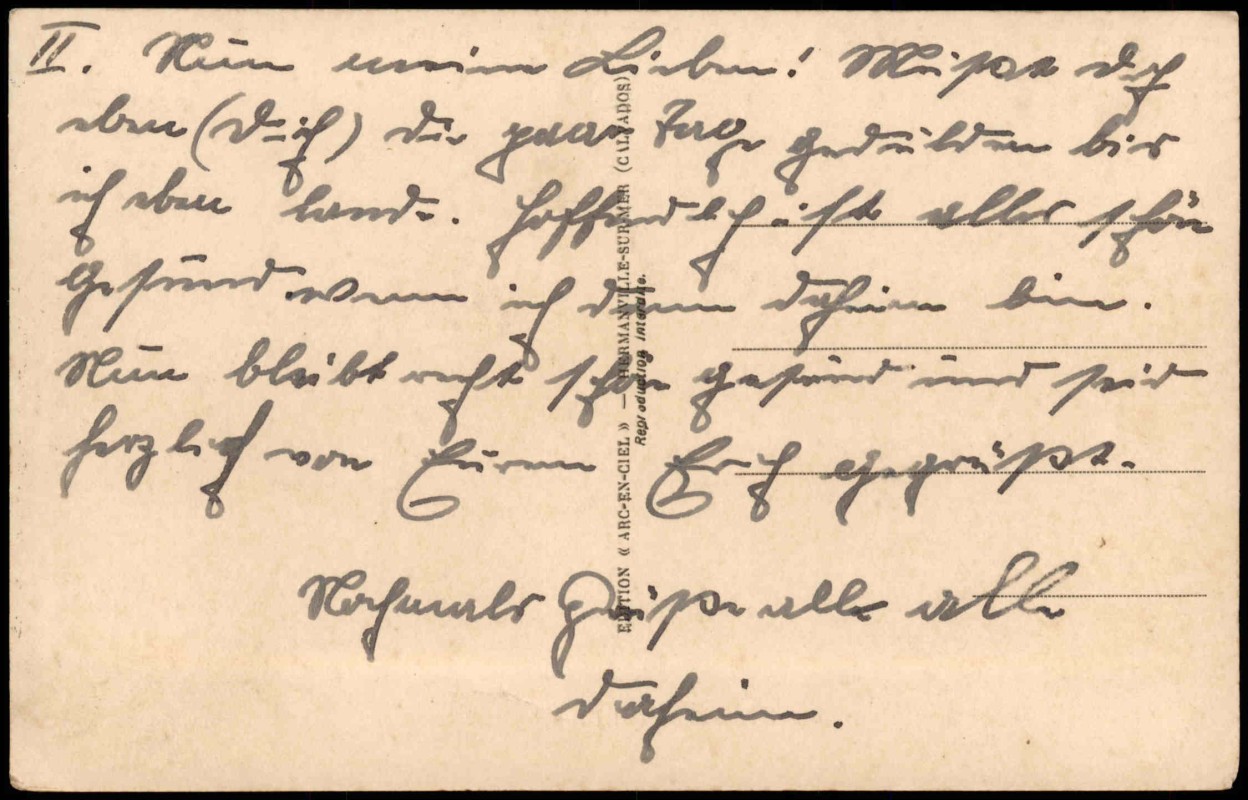 II. Nun meine Lieben! Müßt doch
eben (Dich) die paar Tage gedulden bis
ich eben lande. Hoffendlich ist alles schön
gesund wenn ich dann daheim bin.
Nun bleibt recht schön gesund und seid
herzlich von Euren Erich gegrüßt.
Nochmals Grüße alle alle
daheim.
EDITION « ARC-EN-CIEL » — HERMANVILLE-SUR-MER (CALVADOS)
Reproduction interdite.